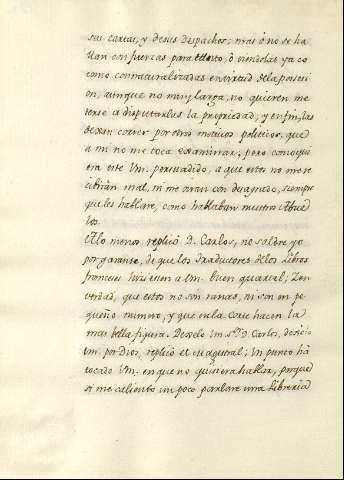 sus cartas, y desus Despachos; mas ò no se ha
llan con fuerzas para ello, ò viendolas ya co
como connaturalizadas en virtud dela posesi
on, aunque no muy larga, no quieren me
terse a disputarlas la propriedad; y enfin, las
dexan correr por otros motivos politicos, que
a mi no me toca examinar; pero como que
era este Vm. persuadido, a que estos no me re
cibiràn mal, ni me oiran con desagrado, siempre
que les hablare, como hablaban nuestros Abue
los.
A lo menos replicó D. Carlos, no saldrè yo
por garante, de que los traductores delos Libros
franceses hiziesen a Vm. buen quartel; i en
verdad, que estos no son ranas, ni son en pe
queño numero, y que en la Corte hacen la
mas bella figura. Dexelo Vm. Sr. D. Carlos, dexelo
Vm. por Dios, replicó el Magistral; Un punto ha
tocado Vm. en que no quisiera hablar, porque
si me caliento un poco parlare una Libreria